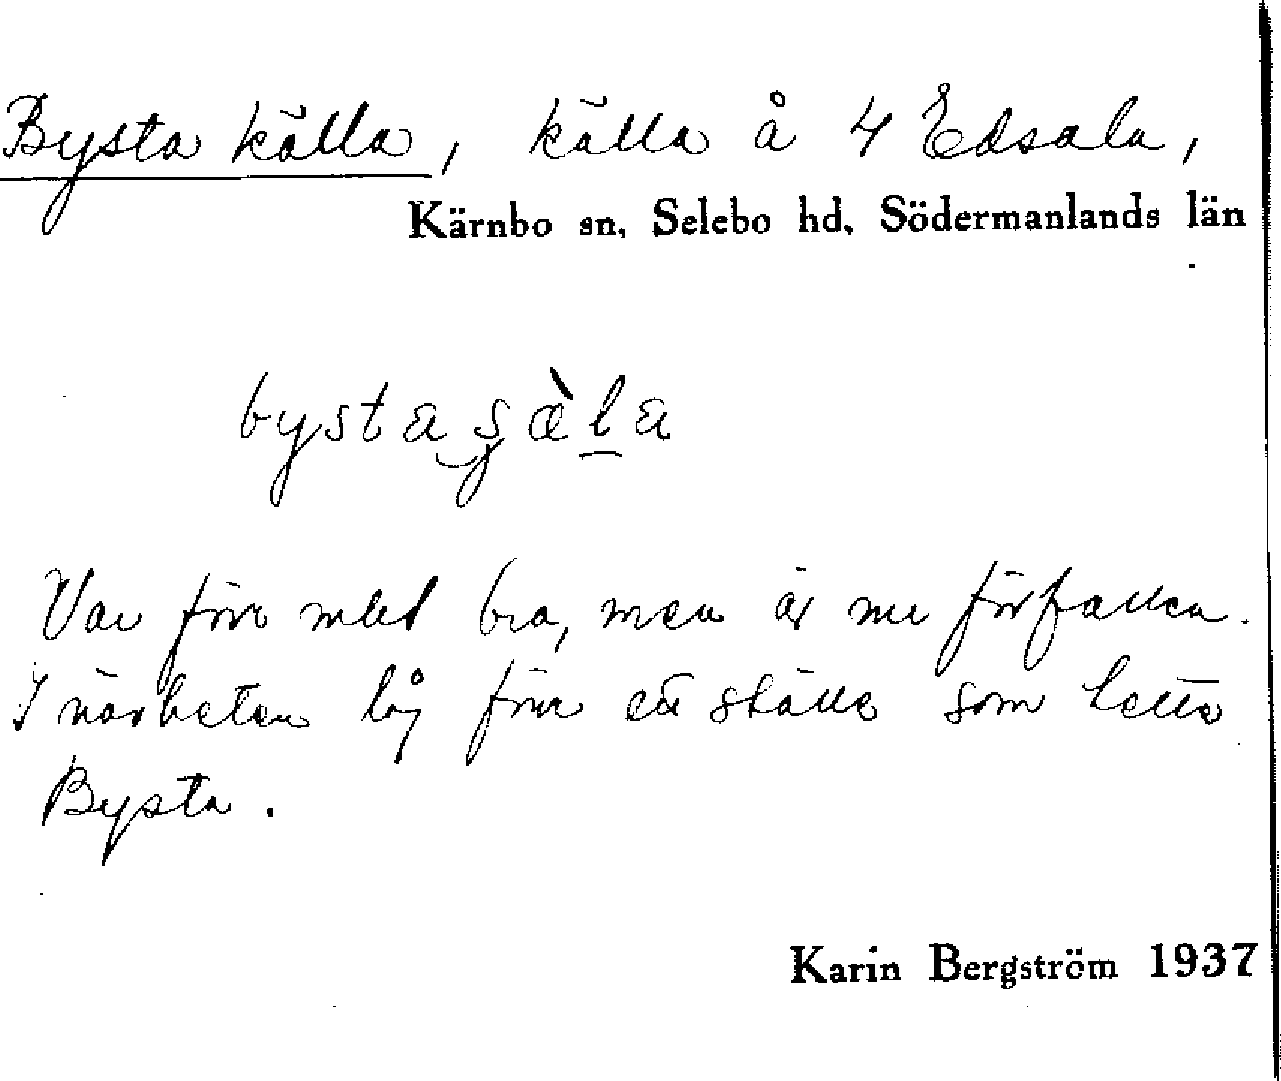 Bysta källa, källa å 4 Edsala,
Kärnbo sn, Selebo hd, Södermanlands län
bysta
Var förr mkt bra, men är nu förfallen.
I närheten låg förr ett ställe som hette
Bysta.
Karin Bergström 1937